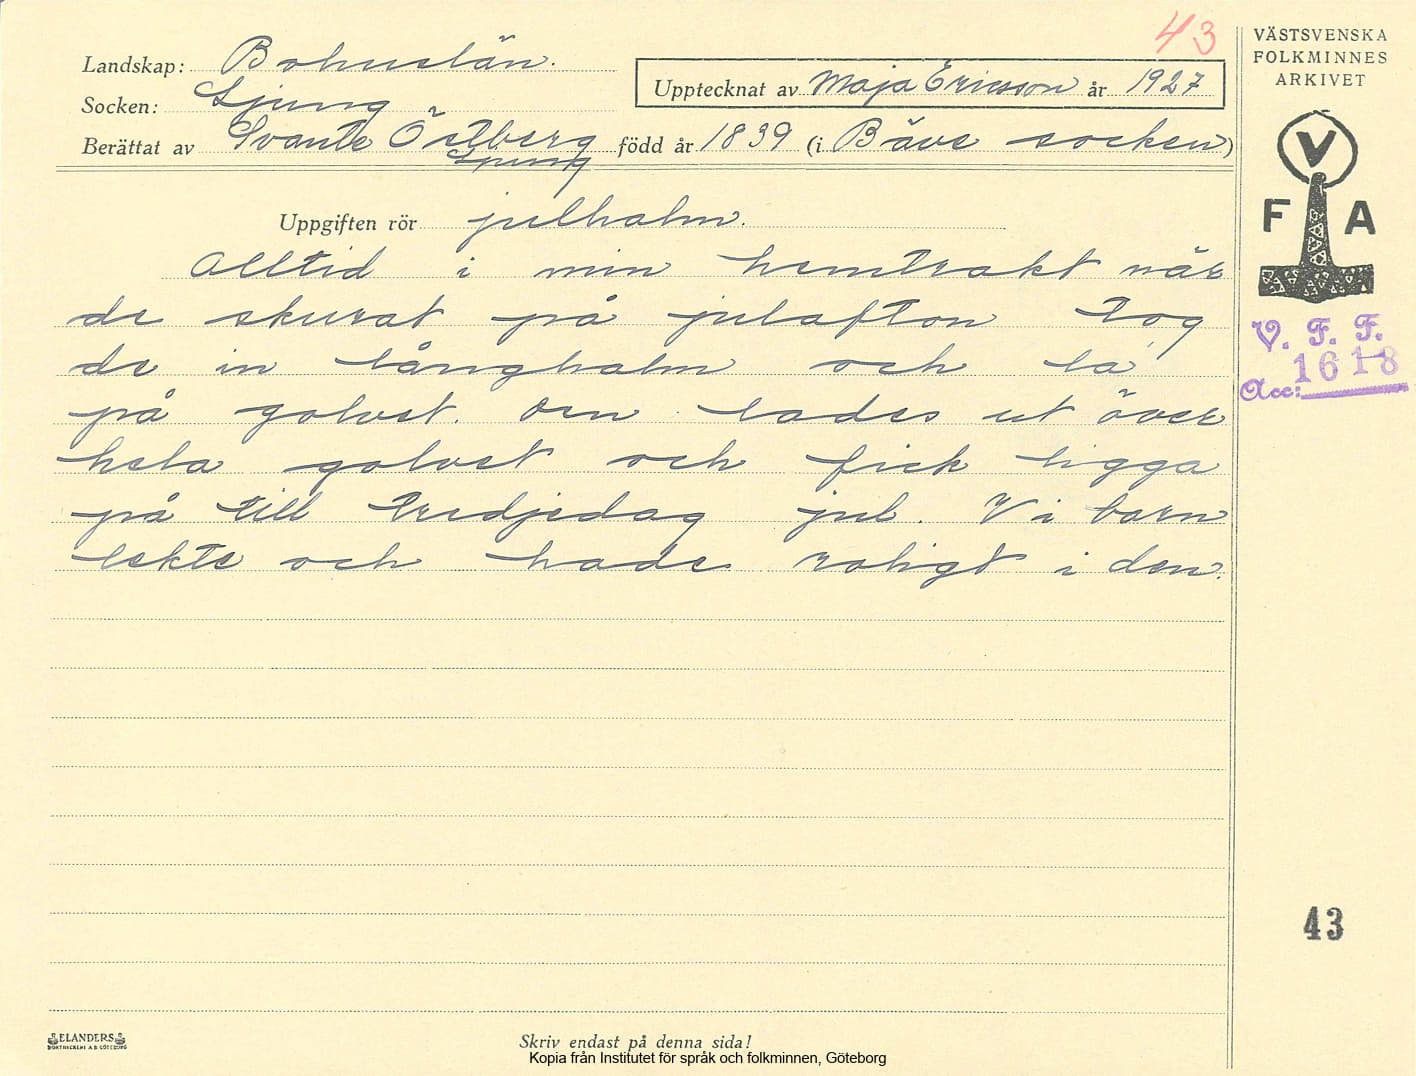 43
Landskap: Bohuslän.
Socken: Ljung
Upptecknat av Maja Ericsson år 1927
Berättat av Svante Östberg född år 1839 (i Bäve socken)
Ljung
Uppgiften rör julhalm.
Alltid i min hemtrakt när
de skurat på julafton tog
de in långhalm och la
på golvet. Den lades ut över
hela golvet och fick ligga
på till tredjedag jul. Vi barn
lekte och hade roligt i den.
VÄSTSVENSKA
FOLKMINNES
ARKIVET
V
F A
V. F. F.
1618
Acc:
43
ELANDERS
BOKTRYCKERI A.B. GÖTEBORG
Skriv endast på denna sida!
Kopia från Institutet för språk och folkminnen, Göteborg